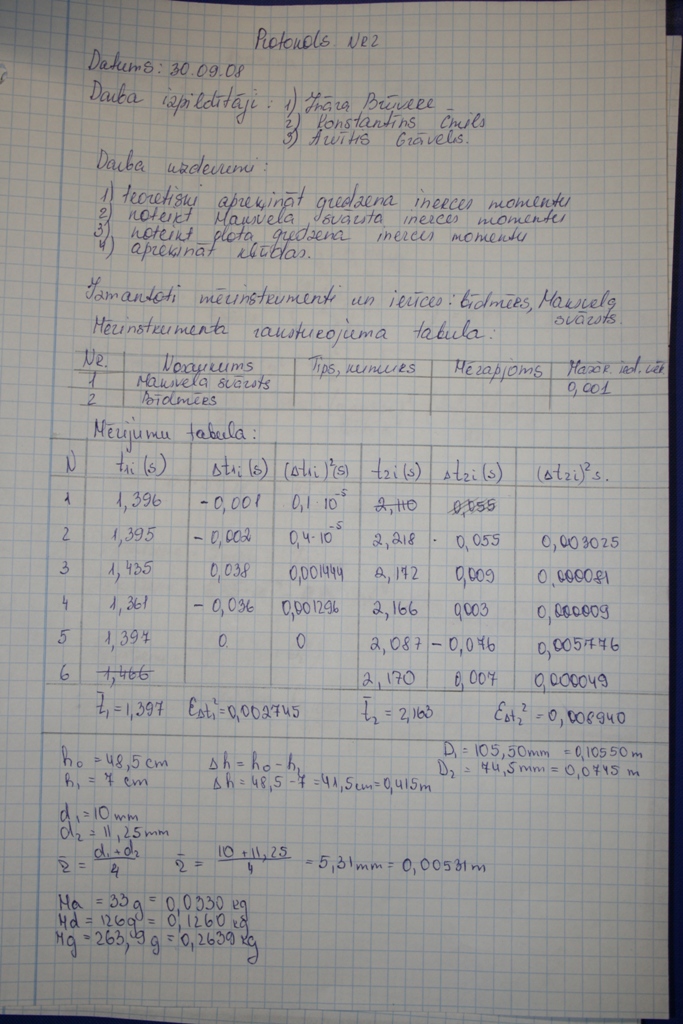 Protokols Nr2
Datums: 30.09.08
Darba izpildītāji: 1) Ināra Brūvere
2) Konstantīns Cmils
3) Arvītis Grāvelis.
Darba uzdevumi:
1) teorētiski aprēķināt gredzena inerces momentu
2) noteikt Maksvela svārsta inerces momentu
3) noteikt dota gredzena inerces momentu
4) aprēķināt kļūdas.
Izmantoti mērinstrumenti un ierīces: bīdmērs, Maksvela
svārsts.
Mērinstrumenta raksturojuma tabula:
Nr. Nosaukums Tips, numurs Mērapjoms Mazāk. ied. vēr.
1 Maksvela svārsts 0,001
2 Bīdmērs
Mērījumu tabula:
N t1i (s) Δt1i (s) (Δt1i)²(s) t2i (s) Δt2i (s) (Δt2i)² s.
1 1,396 -0,001 0,1·10⁻⁵ 2,110 0,055
2 1,395 -0,002 0,4·10⁻⁵ 2,218 0,055 0,003025
3 1,435 0,038 0,001444 2,172 0,009 0,000081
4 1,361 -0,036 0,001296 2,166 0,003 0,000009
5 1,397 0 0 2,087 -0,076 0,005776
6 1,466 2,170 0,007 0,000049
t̄1=1,397 ΣΔt1²=0,002745 t̄2=2,163 ΣΔt2²=0,008940
D1=105,50mm=0,10550m
h0=48,5cm Δh=h0-h1 D2=74,5mm=0,0745m
h1=7cm Δh=48,5-7=41,5cm=0,415m
d1=10mm
d2=11,25mm
r̄=(d1+d2)/4 r̄=(10+11,25)/4=5,31mm=0,00531m
Ma=33g=0,0330kg
Md=126g=0,1260kg
Mg=263,9g=0,2639kg